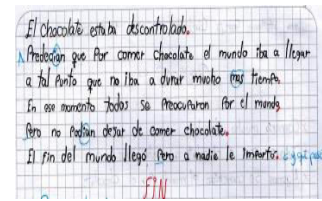 El chocolate estaba descontrolado.
Predecían que Por comer chocolate el mundo iba a llegar
a tal Punto que no iba a durar mucho mas tiempo.
En ese momento todos se Preocuparon Por el mundo,
Pero no Podían dejar de comer chocolate.
El fin del mundo llegó Pero a nadie le Importó.
FIN